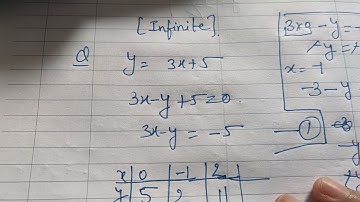 [Infinite]
Q y = 3x+5
3x-y+5=0
3x-y = -5 —①
x 0 -1 2
y 5 2 11
3x9-y=-
x=-1
-3-y